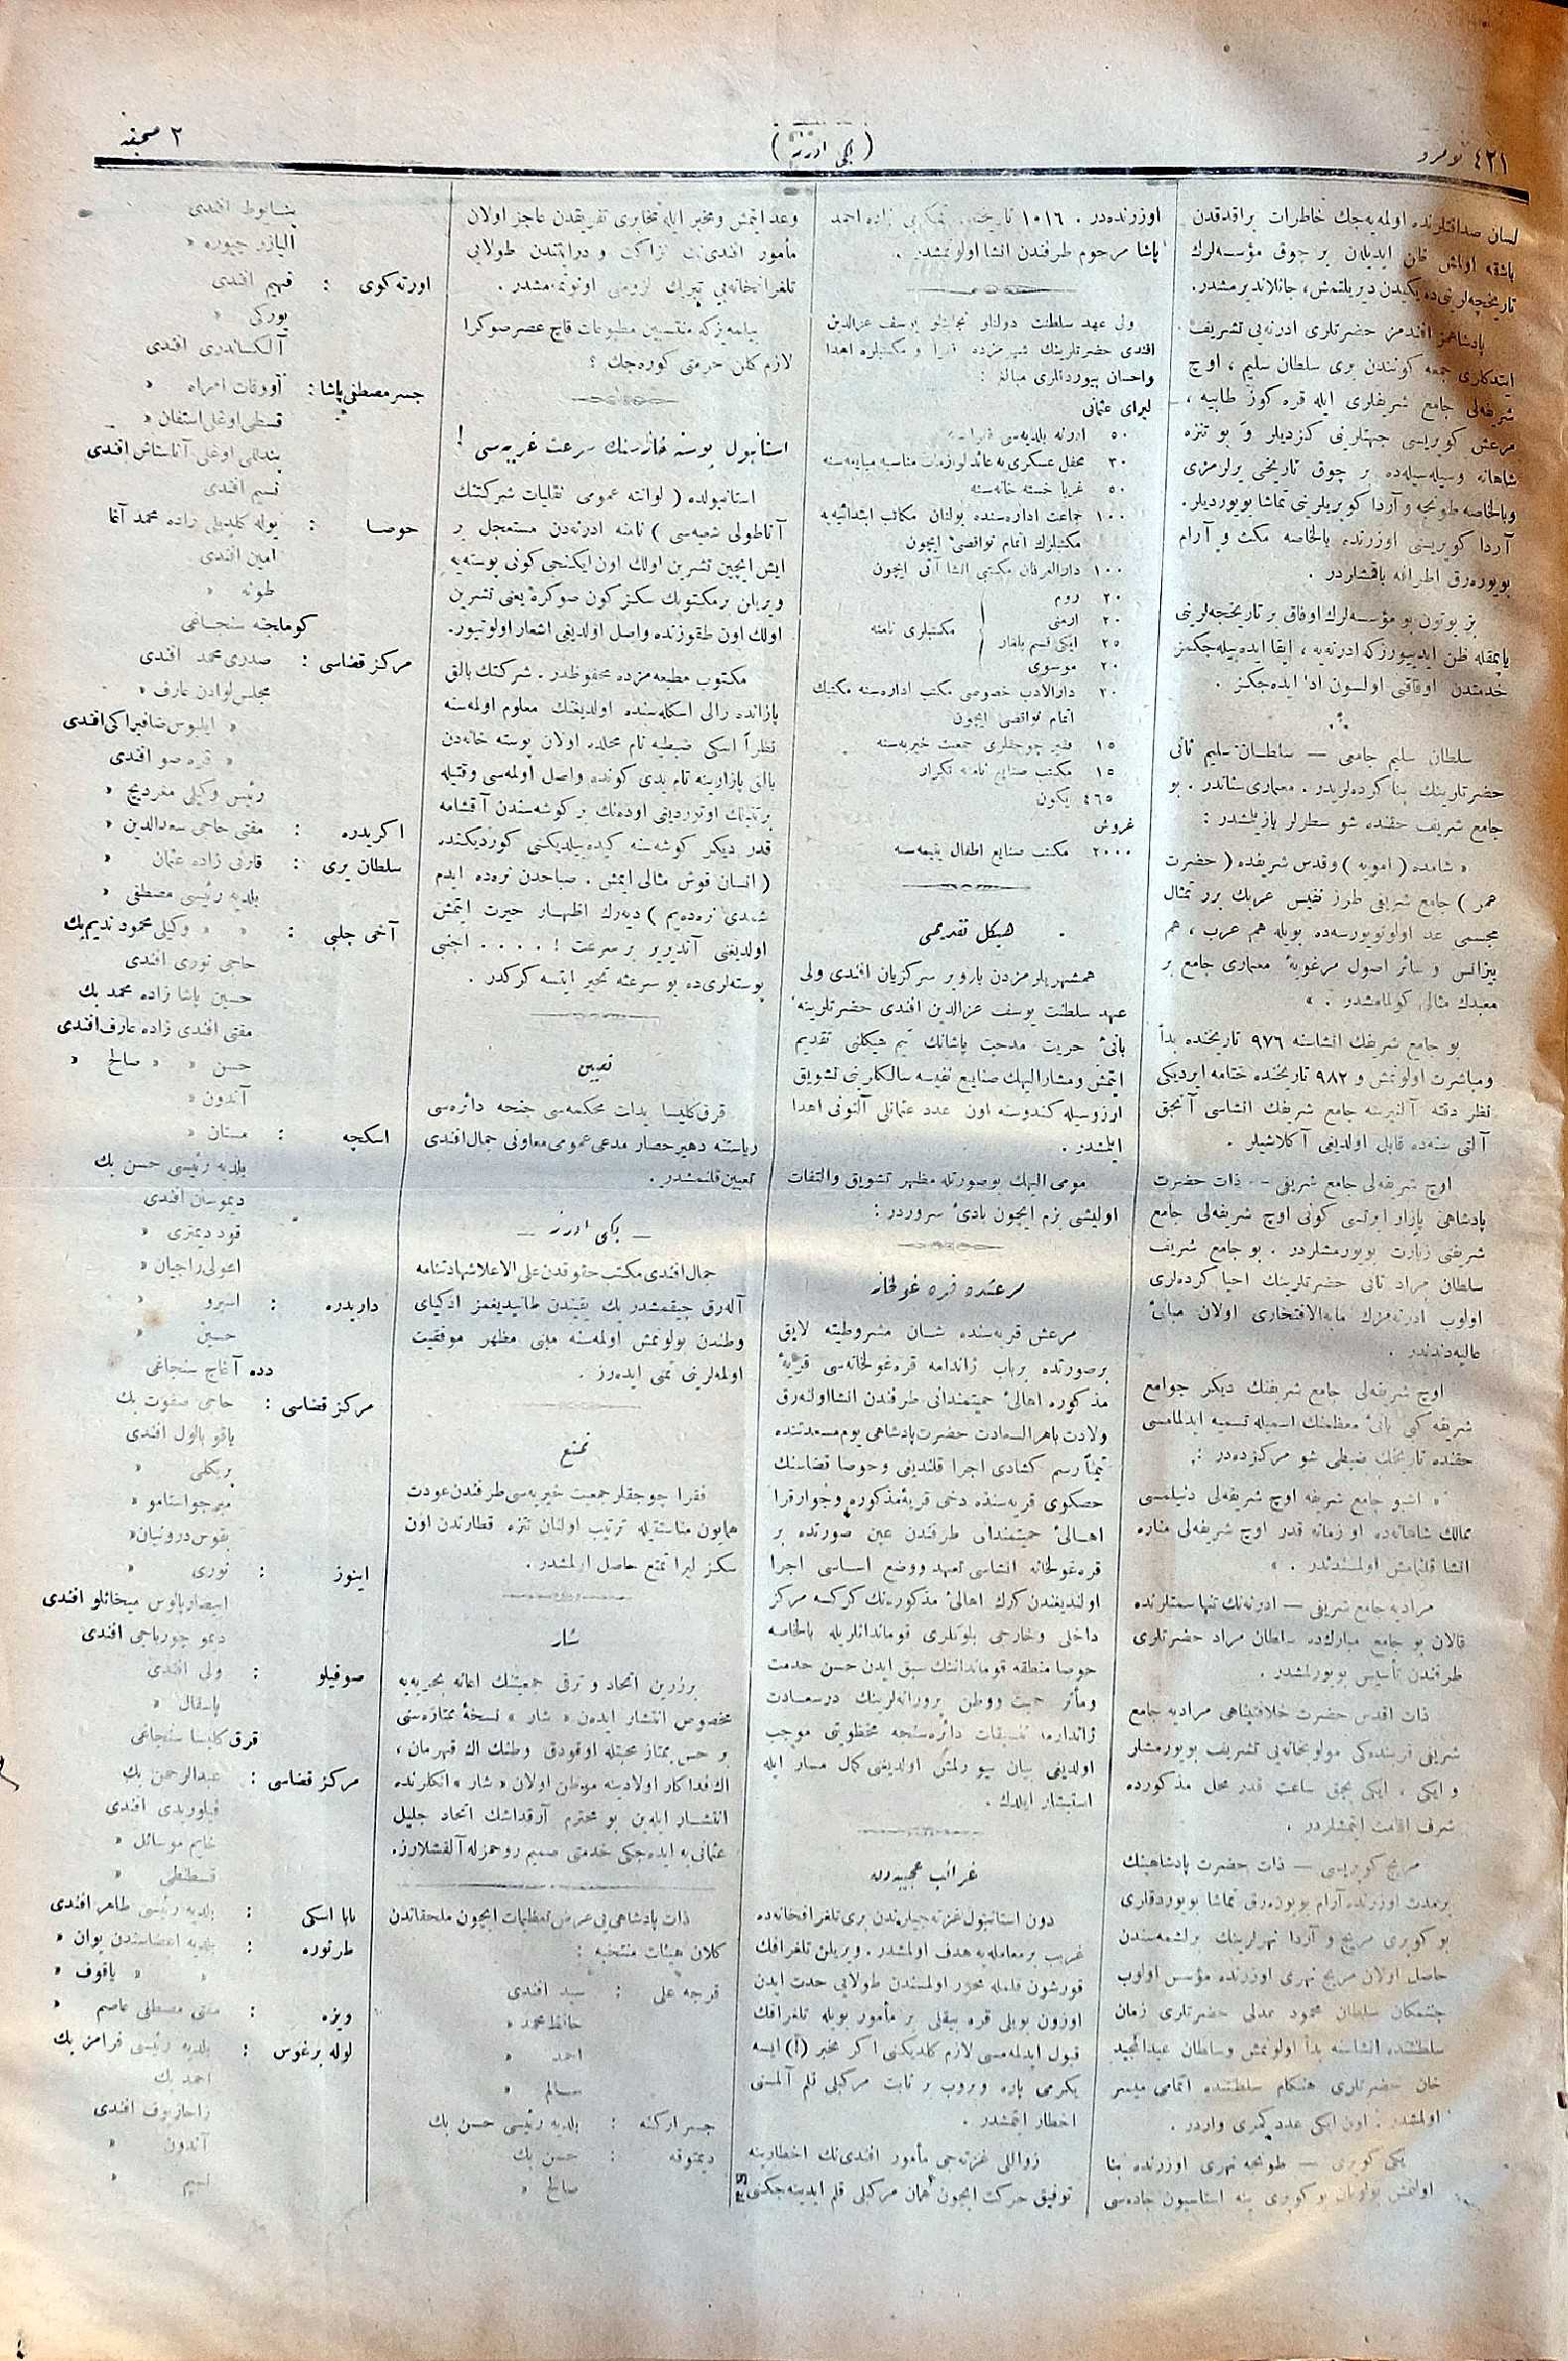 ٤٢١ نومرو
( یکی ادرنه )
٢ صحیفه
لسان صداقتلرنده اولمه‌یه‌جك خاطرات براقدقدن
باشقه اولمش ظن ایدیلان بر چوق مؤسسه‌لرك
تاریخچه‌لرینی‌ده یکیدن دیریلتمش، جانلاندیرمشدر.
پادشاهمز افندمز حضرتلری ادرنه‌یی تشریف
ایتدکاری جمعه کونندن بری سلطان سلیم ، اوچ
شریفه‌لی جامع شریفلری ایله قره کوز طابیه ،
مرعش کوپریسی جهتلرینی کزدیلر و بو تنزه
شاهانه وسیله‌سیله‌ده بر چوق تاریخی یرلرمزی
وبالخاصه طونجه و آردا کوپریلرینی تماشا بویوردیلر.
آردا کوپریسی اوزرنده بالخاصه مکث و آرام
بویوره‌رق اطرافه باقمشلردر .
بز بوتون بو مؤسسه‌لرك اوفاق بر تاریخچه‌لرینی
یاپمقله ظن ایدییورزکه ادرنه‌یه ، ایفا ایده‌بیله‌جکمز
خدمتدن اوفاقنی اولسون ادا ایده‌جکز .
سلطان سلیم جامعی — سلطان سلیم ثانی
حضرتلرینك بنا کرده‌لریدر . معماری سناندر . بو
جامع شریف حقنده شو سطرلر یازیلمشدر :
« شامده ( امویه ) وقدس شریفده ( حضرت
عمر ) جامع شریفی طرز نفیس عربك برر تمثال
مجسمی عد اولونویورسه‌ده بویله هم عرب ، هم
بیزانس و سائر اصول مرغوبهٔ معماری جامع بر
معبدك مثالی کورلمامشدر . »
بو جامع شریفك انشاسنه ٩٧٦ تاریخنده بدأ
ومباشرت اولونمش و ٩٨٢ تاریخنده ختامه ایردیکی
نظر دقته آلنیرسه جامع شریفك انشاسی آنجق
آلتی سنه‌ده قابل اولدیغی آکلاشیلر .
اوچ شریفه‌لی جامع شریفی — ذات حضرت
پادشاهی پازار ایرتسی کونی اوچ شریفه‌لی جامع
شریفنی زیارت بویورمشلردر . بو جامع شریف
سلطان مراد ثانی حضرتلرینك احیا کرده‌لری
اولوب ادرنه‌مزك مابه‌الافتخاری اولان مبانیٔ
عالیه‌دندر .
اوچ شریفه‌لی جامع شریفنك دیکر جوامع
شریفه کبی بانیٔ معظمنك اسمیله تسمیه ایدلمامسی
حقنده تاریخك ضبطی شو مرکزده‌در :
« اشبو جامع شریفه اوچ شریفه‌لی دنیلمسی
ممالك شاهانه‌ده او زمانه قدر اوچ شریفه‌لی مناره
انشا قلنمامش اولمسندندر . »
مرادیه جامع شریفی — ادرنه‌نك تنها سمتلرنده
قالان بو جامع مبارك‌ده سلطان مراد حضرتلری
طرفندن تأسیس بویورلمشدر .
ذات اقدس حضرت خلافتپناهی مرادیه جامع
شریفی قربنده‌کی مولویخانه‌یی تشریف بویورمشلر
و ایکی ، ایکی بچق ساعت قدر محل مذکورده
شرف اقامت ایتمشلردر .
مریچ کوپریسی — ذات حضرت پادشاهینك
برمدت اوزرنده آرام بویوره‌رق تماشا بویوردقلری
بو کوپری مریچ و آردا نهرلرینك برلشمه‌سندن
حاصل اولان مریچ نهری اوزرنده مؤسس اولوب
جنتمکان سلطان محمود عدلی حضرتلری زمان
سلطنتنده انشاسنه بدأ اولونمش وسلطان عبدالمجید
خان حضرتلری هنکام سلطنتنده اتمامی میسر
اولمشدر . اون ایکی عدد کمری واردر .
یکی کوپری — طونجه نهری اوزرنده بنا
اولنمش بولونان بو کوپری ینه استاسیون جاده‌سی
اوزرنده‌در . ١٠١٦ تاریخنده زاده احمد
پاشا مرحوم طرفندن انشا اولونمشدر .
ولی عهد سلطنت دولتلو نجابتلو یوسف عزالدین
افندی حضرتلرینك شهرمزده فقرا و مکتبلره اهدا
واحسان بیوردقلری مبالغ :
لیرای عثمانی
٥٠ ادرنه بلدیه‌سی فقراسنه
٣٠ محفل عسکری‌یه عائد لوازمات مناسبه مبایعه‌سنه
٥٠ غربا خسته خانه‌سنه
١٠٠ جماعت اداره‌سنده بولنان مکاتب ابتدائیه‌یه
مکتبلرك اتمام نواقصی ایچون
١٠٠ دارالعرفان مکتبی انشا آتی ایچون
٢٠ روم
٢٠ ارمنی
٢٥ ایکی قسم بلغار
٢٠ موسوی
مکتبلری نامنه
٢٠ دارالادب خصوصی مکتب اداره‌سنه مکتبك
اتمام نواقصی ایچون
١٥ فقیر چوجقلری جمعیت خیریه‌سنه
١٥ مکتب صنایع نامنه تکرار
٤٦٥ یکون
غروش
٢٠٠٠ مکتب صنایع اطفال یتیمه‌سنه
هیکل تقدیمی
همشهریلرمزدن بارویر سرکزیان افندی ولی
عهد سلطنت یوسف عزالدین افندی حضرتلرینه
بانیٔ حریت مدحت پاشانك نیم هیکلنی تقدیم
ایتمش ومشارالیهك صنایع نفیسه سالکلرینی تشویق
ارزوسیله کندوسنه اون عدد عثمانلی آلتونی اهدا
ایلمشدر .
مومی الیهك بو صورتله مظهر تشویق والتفات
اولیشی بزم ایچون بادیٔ سروردر :
مرعشده قره غولخانه
مرعش قریه‌سنده شان مشروطیته لایق
برصورتده برباب ژاندامه قره‌غولخانه‌سی قریهٔ
مذکوره اهالیٔ حمیتمندانی طرفندن انشا اولنه‌رق
ولادت باهرالسعادت حضرت پادشاهی یوم مسعدتنده
تیمناً رسم کشادی اجرا قلندیغی وحوصا قضاسنك
حصکوی قریه‌سنده دخی قریهٔ مذکوره وجوار قرا
اهالیٔ حمیتمندانی طرفندن عین صورتده بر
قره‌غولخانه انشاسی تعهد ووضع اساسی اجرا
اولندیغندن کرك اهالیٔ مذکوره‌نك کرکسه مرکز
داخلی وخارجی بلوکلری قوماندانلریله بالخاصه
حوصا منطقه قومانداننك سبق ایدن حسن خدمت
ومآثر حمیت ووطن پرورانه‌لرینك درسعادت
ژاندارمه تنسیقات دائره‌سنجه محظوظیتی موجب
اولدیغی بیان بیورلمش اولدیغی کمال مسار ایله
استبشار ایلدك .
غرائب عجیبه‌دن
دون استانبول غزته‌جیلرندن بری تلغرافخانه‌ده
غریب بر معامله‌یه هدف اولمشدر . ویریلن تلغرافك
قورشون قلمله محرر اولمسندن طولایی حدت ایدن
اوزون بویلی قره بیقلی بر مأمور بویله تلغرافك
قبول ایدلمه‌مسی لازم کلدیکنی اکر مخبر (!) ایسه
یکرمی پاره ویروب بر ثابت مرکبلی قلم آلمسنی
اخطار ایتمشدر .
زواللی غزته‌جی مأمور افندی‌نك اخطارینه
توفیق حرکت ایچون همان مرکبلی قلم ایدینه‌جکنی
وعد ایتمش ومخبر ایله مخابری تفریقدن عاجز اولان
مأمور افندی‌نك نزاکت و درایتندن طولایی
تلغرافخانه‌یی تبریك لزومنی اونوتمامشدر .
بیلمه‌یزکه منتسبین مطبوعات قاچ عصر صوکرا
لازم کلن حرمتی کوره‌جك ؟
استانبول پوسته خانه‌سنك سرعت غریبه‌سی !
استانبولده ( لوانته عمومی نقلیات شرکتنك
آناطولی شعبه‌سی ) نامنه ادرنه‌دن مستعجل بر
ایش ایچین تشرین اولك اون ایکنجی کونی پوسته‌یه
ویریلن بر مکتوبك سکز کون صوکره یعنی تشرین
اولك اون طقوزنده واصل اولدیغی اشعار اولونیور.
مکتوب مطبعه‌مزده محفوظدر . شرکتك بالق
پازانده رالی اسکله‌سنده اولدیغنك معلوم اولمه‌سنه
نظراً اسکی ضبطیه نام محلده اولان پوسته خانه‌دن
بالق بازارینه تام یدی کونده واصل اولمه‌سی وقتیله
برتنبلك اوتوردیغی اوده‌نك بر کوشه‌سندن آقشامه
قدر دیکر کوشه‌سنه کیده‌بیلدیکنی کوردیکنده
( انسان قوش مثالی ایمش . صباحدن نره‌ده ایدم
شمدی نره‌ده‌یم ) دیه‌رك اظهار حیرت ایتمش
اولدیغنی آندیریر بر سرعت ! . . . . اجنبی
پوسته‌لری‌ده بو سرعته تحیر ایتسه کرکدر .
تعیین
قرق کلیسا بدایت محکمه‌سی جنحه دائره‌سی
ریاستنه دهیر حصار مدعی عمومی معاونی جمال افندی
تعیین قلنمشدر .
— یکی ادرنه —
جمال افندی مکتب حقوقدن علی الاعلا شهادتنامه
آله‌رق چیقمشدر. پك یقیندن طانیدیغمز اذکیای
وطندن بولونمش اولمه‌سنه مبنی مظهر موفقیت
اولمه‌لرینی تمنی ایده‌رز .
تمتع
فقرا چوجقلر جمعیت خیریه‌سی طرفندن عودت
همایون مناسبتیله ترتیب اولنان تنزه قطارندن اون
سکز لیرا تمتع حاصل اولمشدر .
نثار
برزرین اتحاد و ترقی جمعیتنك اعانه بحریه‌یه
مخصوص انتشار ایدن « نثار » نسخهٔ ممتازه‌سنی
بر حس ممتاز محبتله اوقودق وطنك اك قهرمان ،
اك فداکار اولادینه موطن اولان « نثار » انکلرنده
انتشار ایلین بو محترم آرقداشك اتحاد جلیل
عثمانی‌یه ایده‌جکی خدمتی صمیم روحمزله آلقشلارز.
ذات پادشاهی‌یی عرض تعظیمات ایچون ملحقاتدن
کلان هیئات منتخبه :
قرجه علی : سید افندی
حافظ محمد «
احمد «
سالم «
جسر ارکنه : بلدیه رئیسی حسن بك
دیمتوقه : حسن بك
صالح «
پنایوط افندی
الیازر چپوره «
اورته کوی : فهیم افندی
یورکی «
آلکساندری افندی
جسر مصطفی پاشا : آووقات امرالله «
قسطی اوغلی استفان «
بندللی اوغلی آناستاش افندی
نسیم افندی
حوصا : بوله کلدیلی زاده محمد آغا
امین افندی
طونه «
کوملجنه سنجاغی
مرکز قضاسی : صدری محمد افندی
مجلس لوادن عارف «
« ایلیوس ضافیراکی افندی
« قره صو افندی
رئیس وکیلی مغردیچ «
اکریدره : مفتی حاجی سعدالدین «
سلطان یری : قارنی زاده عثمان «
بلدیه رئیسی مصطفی «
آخی چلبی : « « وکیلی محمود ندیم بك
حاجی نوری افندی
حسین پاشا زاده محمد بك
مفتی افندی زاده عارف افندی
حسن « « صالح «
آندون «
اسکچه : مستان «
بلدیه رئیسی حسن بك
دیموستن افندی
قود دیمتری «
اغولی راجیان «
داریدره : امیرو «
حسین «
دده آغاج سنجاغی
مرکز قضاسی : حاجی صفوت بك
یاقو بالول افندی
بریکلی «
میرجو استامو «
بغوس درونیان «
اینوز : نوری «
ایپصاریاوس میخائلو افندی
دیمو چورباجی افندی
صوفیلو : ولی افندی
پاسقال «
قرق کلیسا سنجاغی
مرکز قضاسی : عبدالرحمن بك
فیلوریدی افندی
خایم موسائل «
قسطنطی «
بابا اسکی : بلدیه رئیسی طاهر افندی
طرنوره : بلدیه اعضاسندن یوان «
« « یاقوف «
ویزه : مفتی مصطفی عاصم «
لوله برغوس : بلدیه رئیسی فرامرز بك
احمد بك
زاخاریوف افندی
آندون «
نسیم «